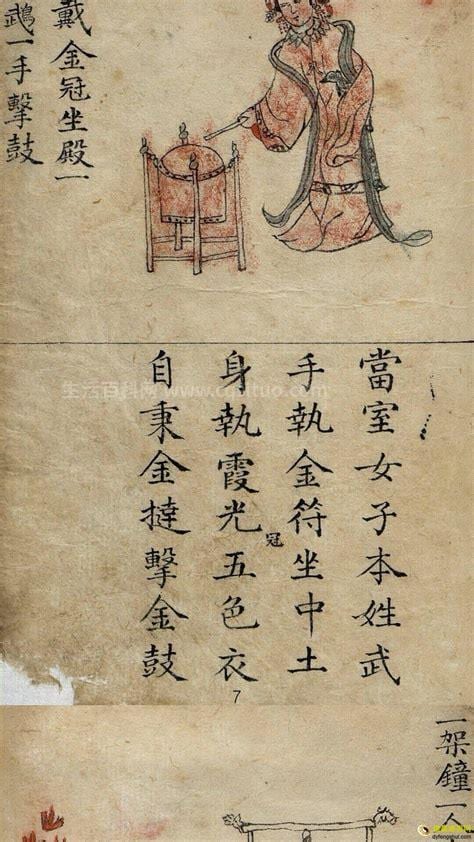 戴金冠坐殿一
鵡一手擊鼓
當室女子本姓武
手執金符坐中土
冠
身執霞光五色衣
自秉金撻擊金鼓
7
一架鐘一人
生活百科网
dyfengshui.com